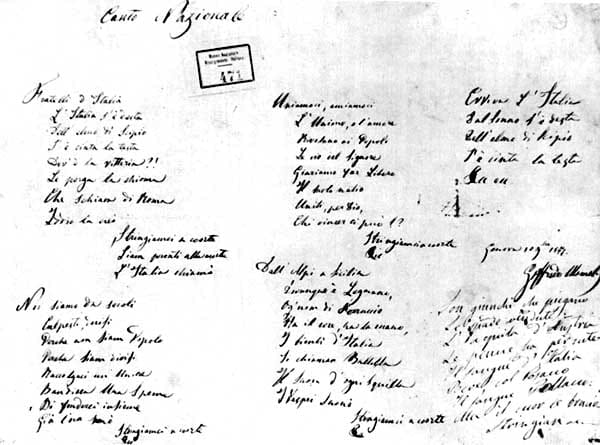 Canto Nazionale
Museo Nazionale
Risorgimento Italiano
471
Fratelli d'Italia
L'Italia s'è desta
Dell'elmo di Scipio
S'è cinta la testa
Dov'è la vittoria?!
Le porga la chioma
Che schiava di Roma
Iddio la creò
Stringiamci a coorte
Siam pronti alla morte
L'Italia chiamò
Noi siamo da secoli
Calpesti, derisi
Perché non siam Popolo
Perché siam divisi
Raccolgaci un'Unica
Bandiera una Speme
Di fonderci insieme
Già l'ora suonò
Stringiamci a coorte
Uniamoci, amiamoci
L'Unione, e l'amore
Rivelano ai Popoli
Le vie del Signore
Giuriamo far Libero
Il suolo natio
Uniti, per Dio,
Chi vincer ci può!?
Stringiamci a coorte
Dall'Alpi a Sicilia
Dovunque è Legnano,
Ogn'uom di Ferruccio
Ha il core, ha la mano,
I bimbi d'Italia
Si chiaman Balilla
Il Suon d'ogni squilla
I Vespri Suonò
Stringiamci a coorte
Evviva l'Italia
Dal sonno s'è desta
Dell'elmo di Scipio
S'è cinta la testa
Genova
Goffredo Mameli
Son giunchi che piegano
Le spade vendute
L'Aquila d'Austria
Le penne ha perdute
Il sangue d'Italia
Bevé, col
Il sangue Polacco
Ma il cuor le bruciò
Stringiamci